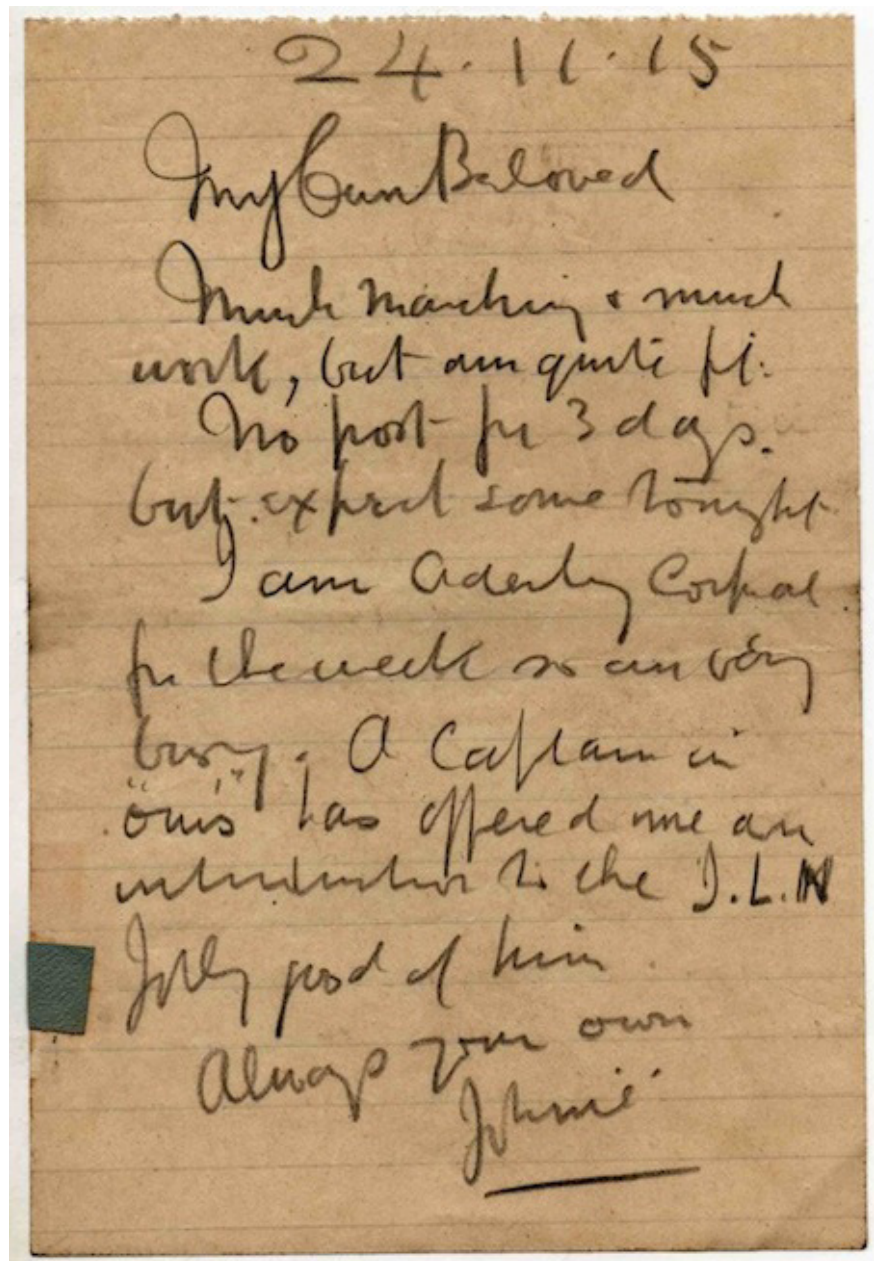 24.11.15
My Own Beloved
Much marching & much
work, but am quite fit.
No post for 3 days.
but expect some tonight
I am Orderly Corporal
for the week so am very
busy. A Captain in
"ours" has offered me an
introduction to the I.L.N
Jolly good of him.
Always your own
Johnie